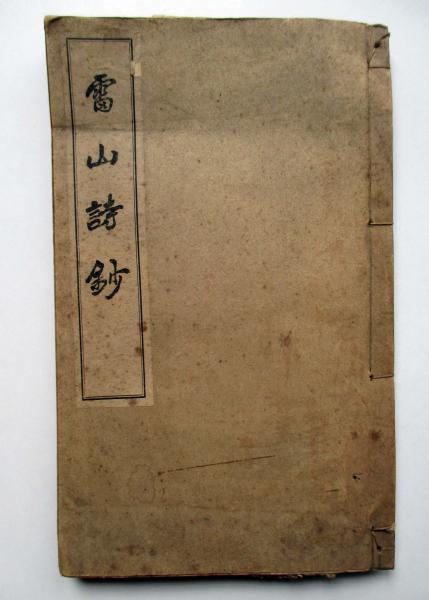 雷山詩鈔